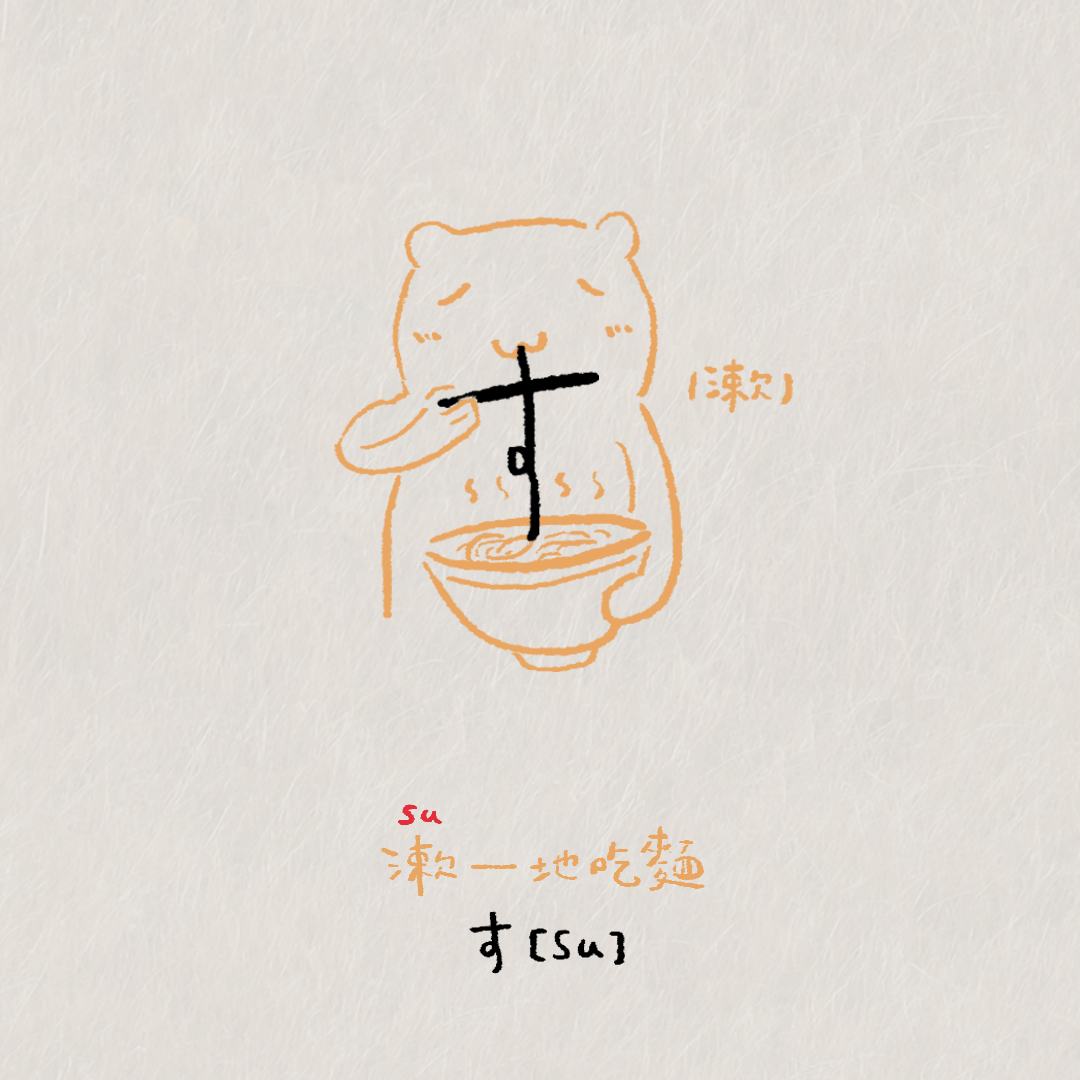 (漱)
su
漱一地吃麵
す [su]